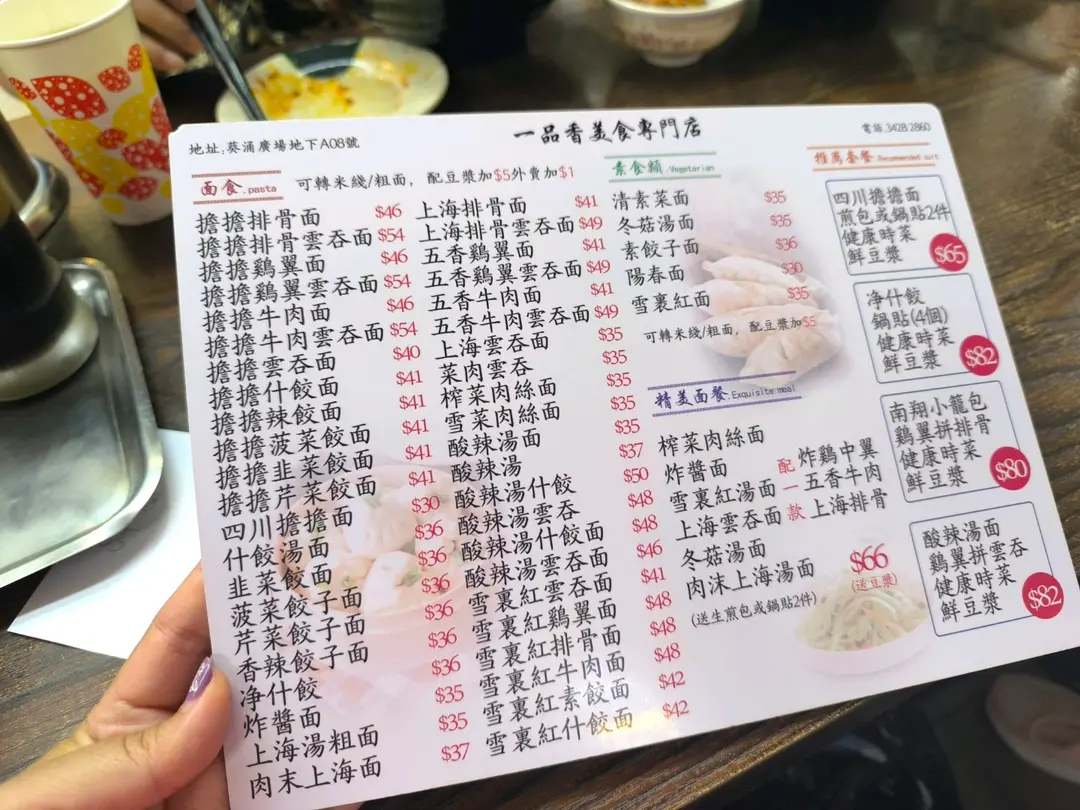 地址:葵涌廣場地下A08號
一品香美食專門店
電話.3428 2860
面食.pasta
可轉米綫/粗面, 配豆漿加$5外賣加$1
擔擔排骨面 $46
擔擔排骨雲吞面 $54
擔擔鷄翼面 $46
擔擔鷄翼雲吞面 $54
擔擔牛肉面 $46
擔擔牛肉雲吞面 $54
擔擔雲吞面 $40
擔擔什餃面 $41
擔擔辣餃面 $41
擔擔菠菜餃面 $41
擔擔韭菜餃面 $41
擔擔芹菜餃面 $41
四川擔擔面 $30
什餃湯面 $36
韭菜餃面 $36
菠菜餃子面 $36
芹菜餃子面 $36
香辣餃子面 $36
净什餃 $36
炸醬面 $35
上海湯粗面 $35
肉末上海面 $37
上海排骨面 $41
上海排骨雲吞面 $49
五香鷄翼面 $41
五香鷄翼雲吞面 $49
五香牛肉面 $41
五香牛肉雲吞面 $49
上海雲吞面 $35
菜肉雲吞 $35
榨菜肉絲面 $35
雪菜肉絲面 $35
酸辣湯面 $35
酸辣湯 $37
酸辣湯什餃 $50
酸辣湯雲吞 $48
酸辣湯什餃面 $48
酸辣湯雲吞面 $46
雪裏紅雲吞面 $41
雪裏紅鷄翼面 $48
雪裏紅排骨面 $48
雪裏紅牛肉面 $48
雪裏紅素餃面 $42
雪裏紅什餃面 $42
素食類.Vegetarian
清素菜面 $35
冬菇湯面 $35
素餃子面 $36
陽春面 $30
雪裏紅面 $35
可轉米綫/粗面, 配豆漿加$5
精美面餐.Exquisite meal
榨菜肉絲面
炸醬面
雪裏紅湯面
上海雲吞面
冬菇湯面
肉沫上海湯面
(送生煎包或鍋貼2件)
配一款
炸鷄中翼
五香牛肉
上海排骨
$66
(送豆漿)
推薦套餐.Recommended suit
四川擔擔面
煎包或鍋貼2件
健康時菜
鮮豆漿
$65
净什餃
鍋貼(4個)
健康時菜
鮮豆漿
$82
南翔小籠包
鷄翼拼排骨
健康時菜
鮮豆漿
$80
酸辣湯面
鷄翼拼雲吞
健康時菜
鮮豆漿
$82